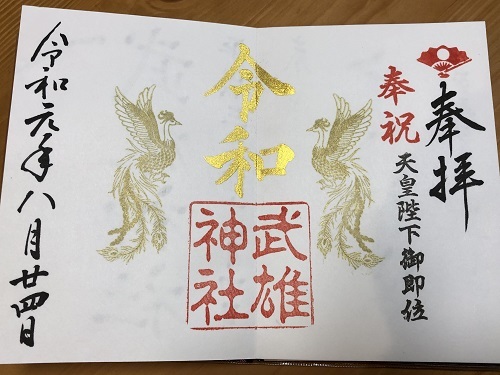 奉拝
奉祝
天皇陛下御即位
令和
武雄
神社
令和元年八月廿四日